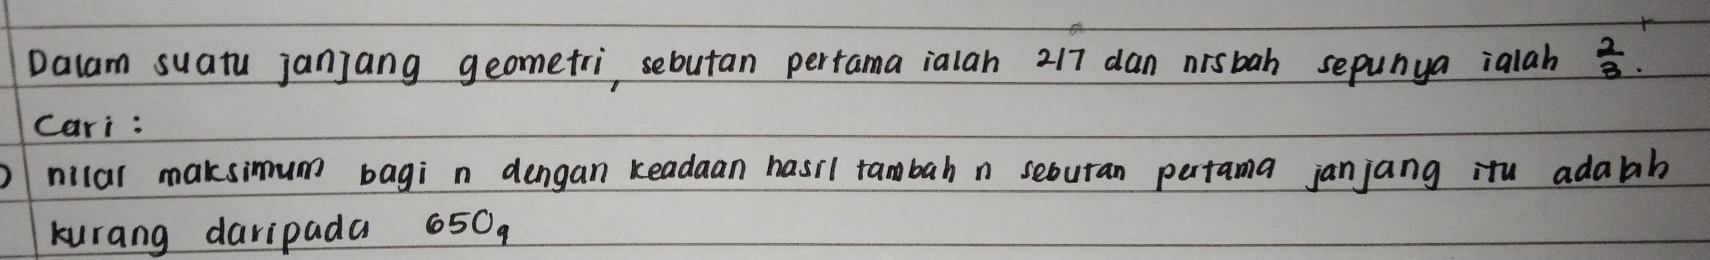 a r
Dalam suatu janjang geometri, sebutan pertama ialah 217 dan nisbah sepunya ialah 2/3.
Cari :
nilai maksimum bagi n dengan keadaan hasil tambah n sebutan pertama janjang itu adalah
kurang daripada 650,